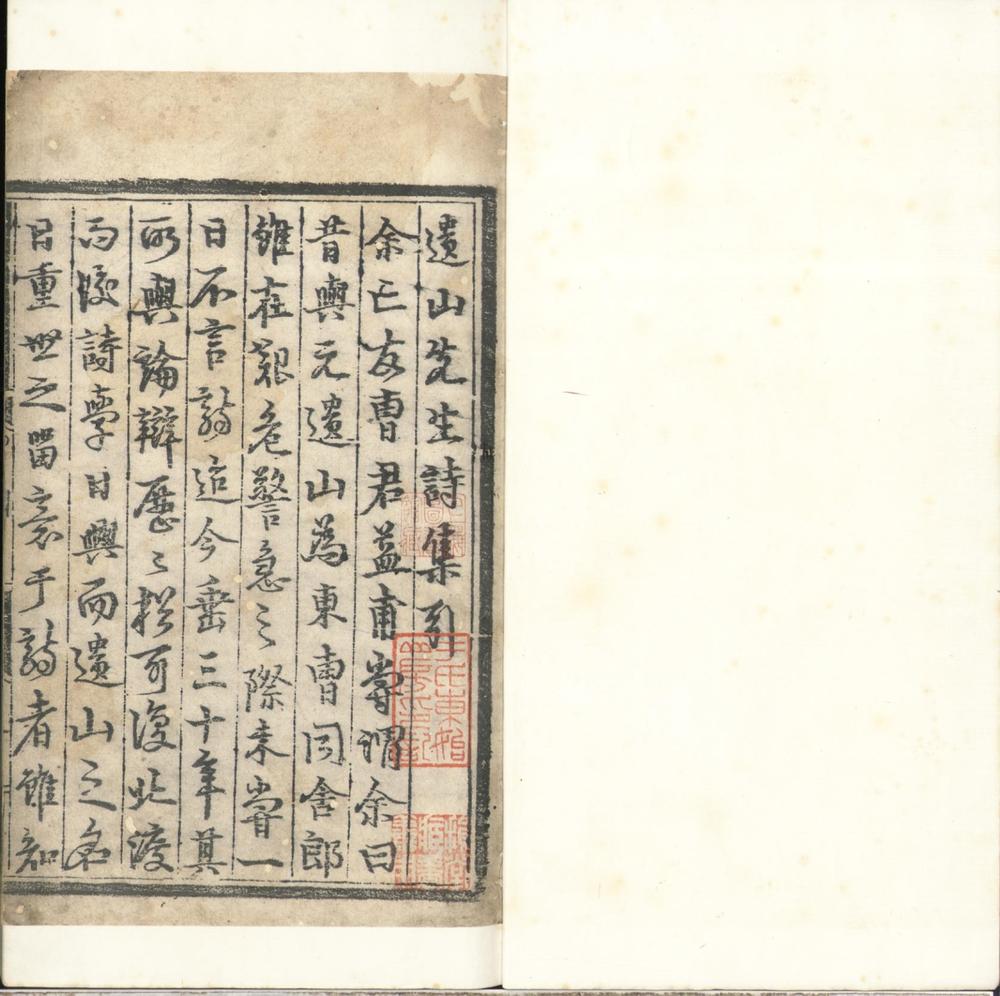 遺山先生詩集引
余亡友曹君益甫嘗謂余曰
昔與元遺山為東曹同舍郎
雖在艱危警急之際未嘗一
日不言詩迨今垂三十年其
所與論辯歷〻猶可復北渡
而後詩學日興而遺山之名
日重世之留意于詩者雖知